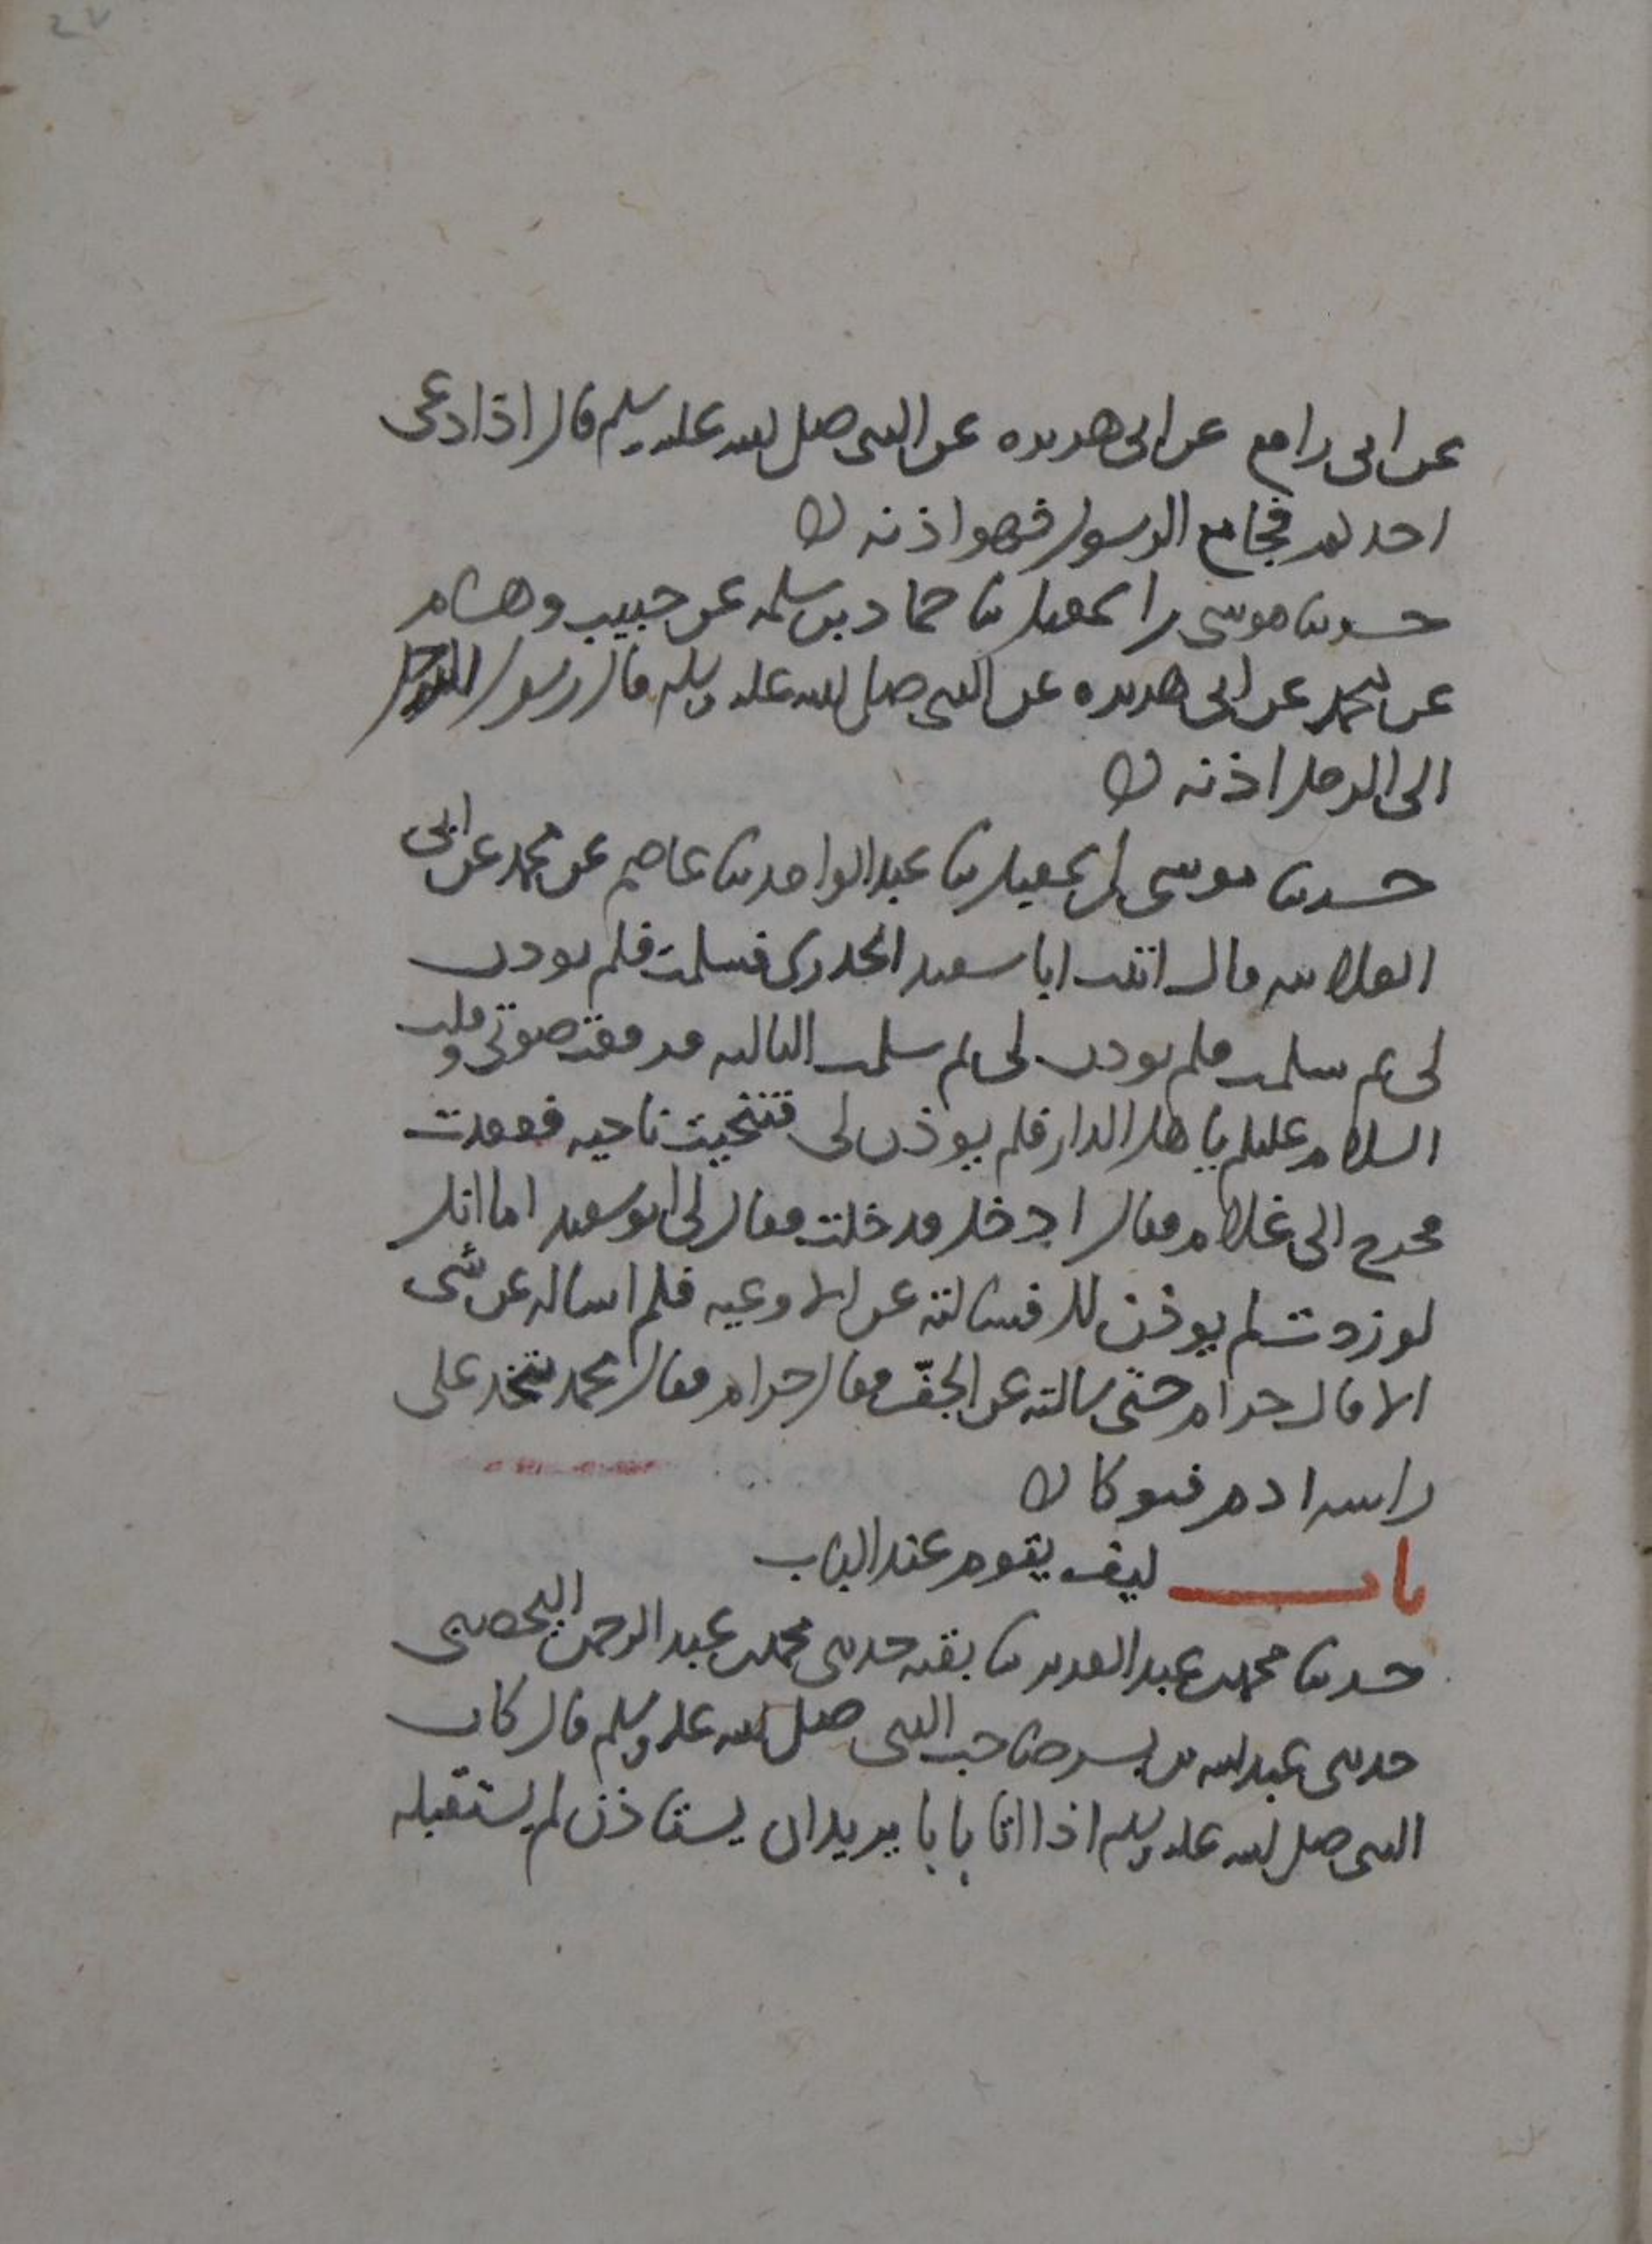 ٢٧
عن ابى رافع عن ابى هريره عن النبى صلى الله عليه وسلم قال اذا دعى
احدكم فجا مع الرسول فهو اذنه
حدثنا موسى بن اسمعيل ثنا حماد بن سلمه عن حبيب وهشام
عن محمد عن ابى هريره عن النبى صلى الله عليه وسلم قال رسول الرجل
الى الرجل اذنه
حدثنا موسى بن اسمعيل ثنا عبد الواحد ثنا عاصم عن محمد عن ابى
العلانيه قال اتيت ابا سعيد الخدرى فسلمت فلم يوذن
لى ثم سلمت فلم يوذن لى ثم سلمت الثالثه فرفعت صوتى وقلت
السلام عليكم يا اهل الدار فلم يوذن لى فتنحيت ناحيه فقعدت
فخرج الى غلام فقال ادخل فدخلت فقال لى ابو سعيد اما انك
لو زدت لم يوذن لك فسالته عن الاوعيه فلم اساله عن شى
الا قال حرام حتى سالته عن الجفّ فقال حرام فقال محمد يتخذ على
راسه ادم فيوكا
باب كيف يقوم عند الباب
حدثنا محمد بن عبد العزيز ثنا بقيه حدثنى محمد بن عبد الرحمن اليحصبى
حدثنى عبد الله بن بسر صاحب النبى صلى الله عليه وسلم قال كان
النبى صلى الله عليه وسلم اذا اتا بابا يريد ان يستاذن لم يستقبله